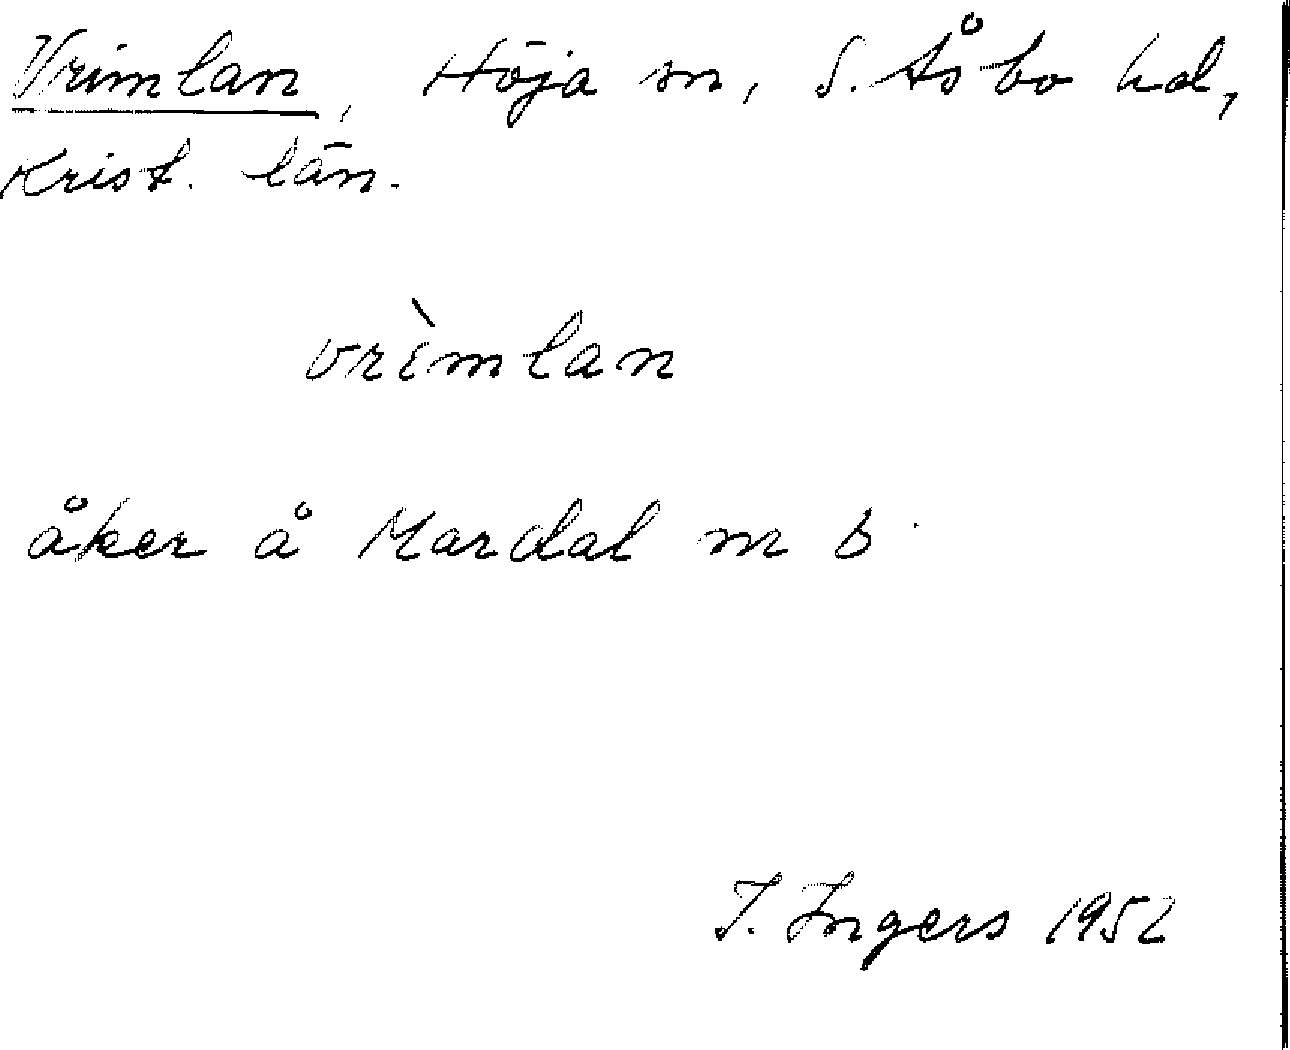 Vrimlan, Höja sn, S. Åsbo hd,
Krist. län.
vrìmlan
åker å Mardal nr 5
I. Ingers 1952